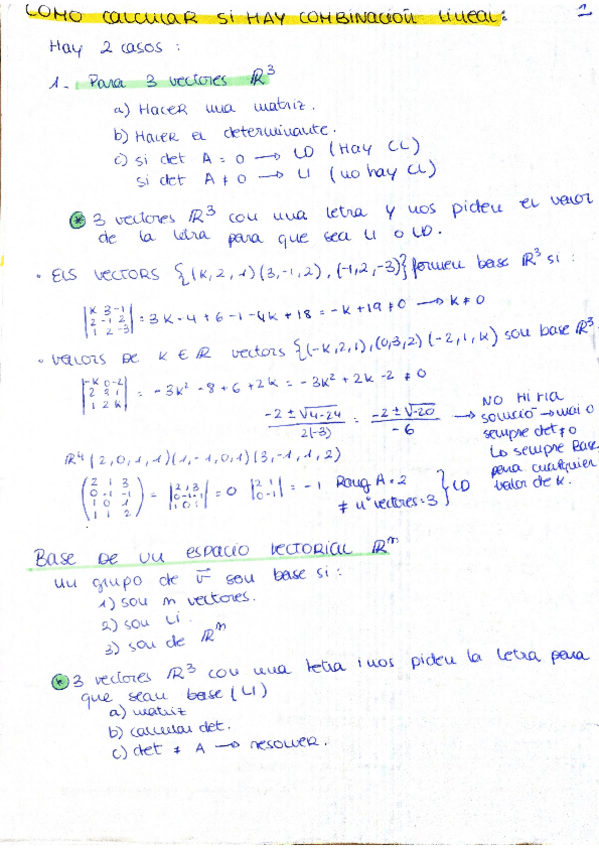 COMO CALCULAR SI HAY COMBINACIÓN LINEAL: 1
Hay 2 casos :
1- Para 3 vectores R³
a) HACER una matriz.
b) HACER el determinante.
c) si det A = 0 → LD (Hay CL)
si det A ≠ 0 → LI (no hay CL)
* 3 vectores R³ con una letra y nos piden el valor
de la letra para que sea LI o LD.
• ELS VECTORS {(K,2,1)(3,-1,2),(-1,2,-3)} formen base R³ si :
|K 3 -1|
|2 -1 2| = 3K - 4 + 6 - 1 - 4K + 18 = -K + 19 ≠ 0 → K ≠ 0
|1 2 -3|
• VALORS DE K ∈ R vectors {(-K,2,1),(0,3,2)(-2,1,K) son base R³.
|-K 0 -2|
|2 3 1| = -3K² - 8 + 6 + 2K = -3K² + 2K - 2 ≠ 0
|1 2 K|
-2 ± √4-24 / 2(-3) = -2 ± √-20 / -6 →
NO HI HA
solució →
sempre det ≠ 0
Lo sempre Base
para cualquier
valor de K.
R⁴ (2,0,1,1)(1,-1,0,1)(3,-1,1,2)
(2 1 3)
(0 -1 -1)
(1 0 1)
(1 1 2)
= |2 1 3| = 0 |2 1| = -1 Rang A = 2
|0 -1 -1| |0 -1| ≠ nº vectores = 3 } LD
|1 0 1|
BASE DE UN ESPACIO VECTORIAL Rⁿ
un grupo de v⃗ son base si :
1) son n vectores.
2) son LI
3) son de Rⁿ
* 3 vectores R³ con una letra i nos piden la letra para
que sean base (LI)
a) matriz
b) calcular det.
c) det ≠ A → resolver.